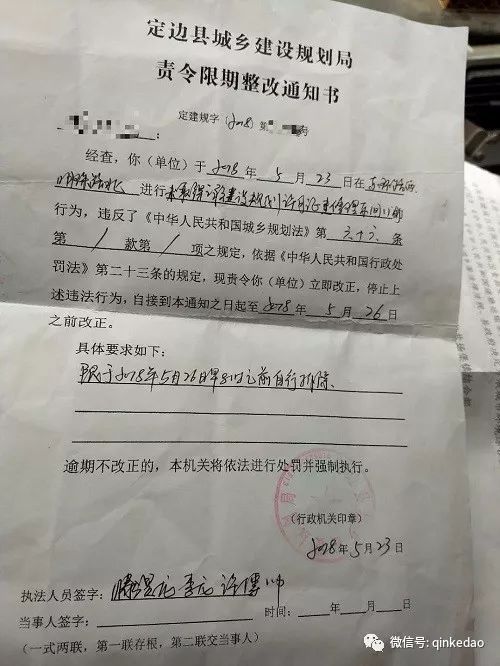 定边县城乡建设规划局
责令限期整改通知书
定建规字（2018）第 号
：
经查，你（单位）于2018年5月23日在
进行未取得工程建设规划许可证
行为，违反了《中华人民共和国城乡规划法》第六十六条
第/款第/项之规定，依据《中华人民共和国行政处
罚法》第二十三条的规定，现责令你（单位）立即改正，停止上
述违法行为，自接到本通知之日起至2018年5月26日
之前改正。
具体要求如下：
限于2018年5月26日早8时之前自行拆除.
逾期不改正的，本机关将依法进行处罚并强制执行。
（行政机关印章）
2018年5月23日
执法人员签字：
当事人签字： 时间： 年 月 日
（一式两联，第一联存根，第二联交当事人）
微信号: qinkedao